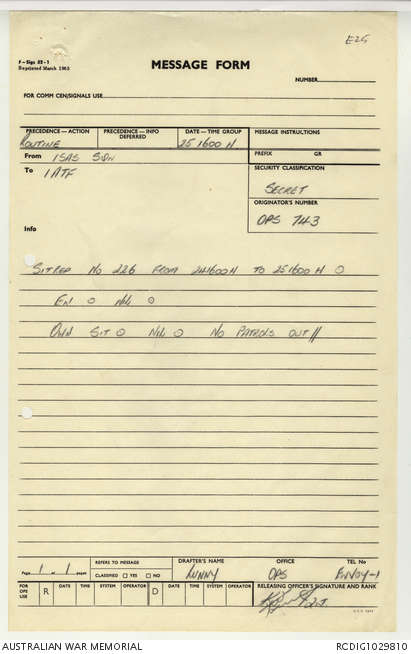 E26
F—Sigs 52-1
Reprinted March 1965
MESSAGE FORM
NUMBER
FOR COMM CEN/SIGNALS USE
PRECEDENCE — ACTION PRECEDENCE — INFO DEFERRED DATE — TIME GROUP MESSAGE INSTRUCTIONS
ROUTINE 251600H
PREFIX GR
From 1SAS SQN
To 1ATF
SECURITY CLASSIFICATION
SECRET
ORIGINATOR'S NUMBER
OPS 743
Info
SITREP No 226 FROM 241600H TO 251600H O
EN O NIL O
OWN SIT O NIL O No PATROLS OUT//
Page 1 of 1 pages
REFERS TO MESSAGE
CLASSIFIED YES NO
DRAFTER'S NAME OFFICE TEL No
OPS
FOR OPS USE R DATE TIME SYSTEM OPERATOR D DATE TIME SYSTEM OPERATOR RELEASING OFFICER'S SIGNATURE AND RANK
AUSTRALIAN WAR MEMORIAL
RCDIG1029810